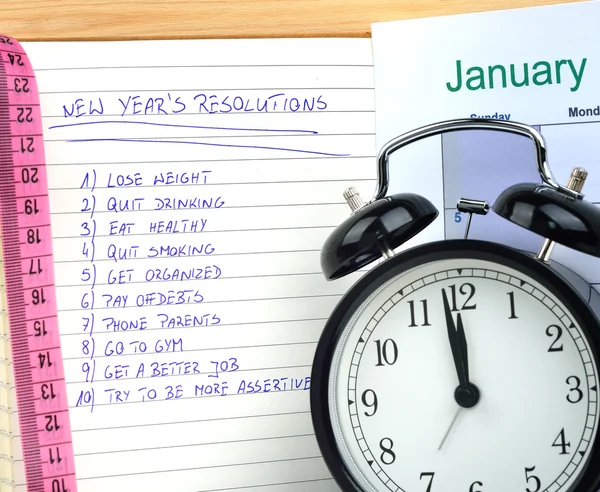 January
Sunday Mond
5
NEW YEAR'S RESOLUTIONS
1) LOSE WEIGHT
2) QUIT DRINKING
3) EAT HEALTHY
4) QUIT SMOKING
5) GET ORGANIZED
6) PAY OFF DEBTS
7) PHONE PARENTS
8) GO TO GYM
9) GET A BETTER JOB
10) TRY TO BE MORE ASSERTIVE
24
23
22
21
20
19
18
17
16
15
14
13
12
11
10
12
11 1
10 2
9 3
8 4
7 6 5